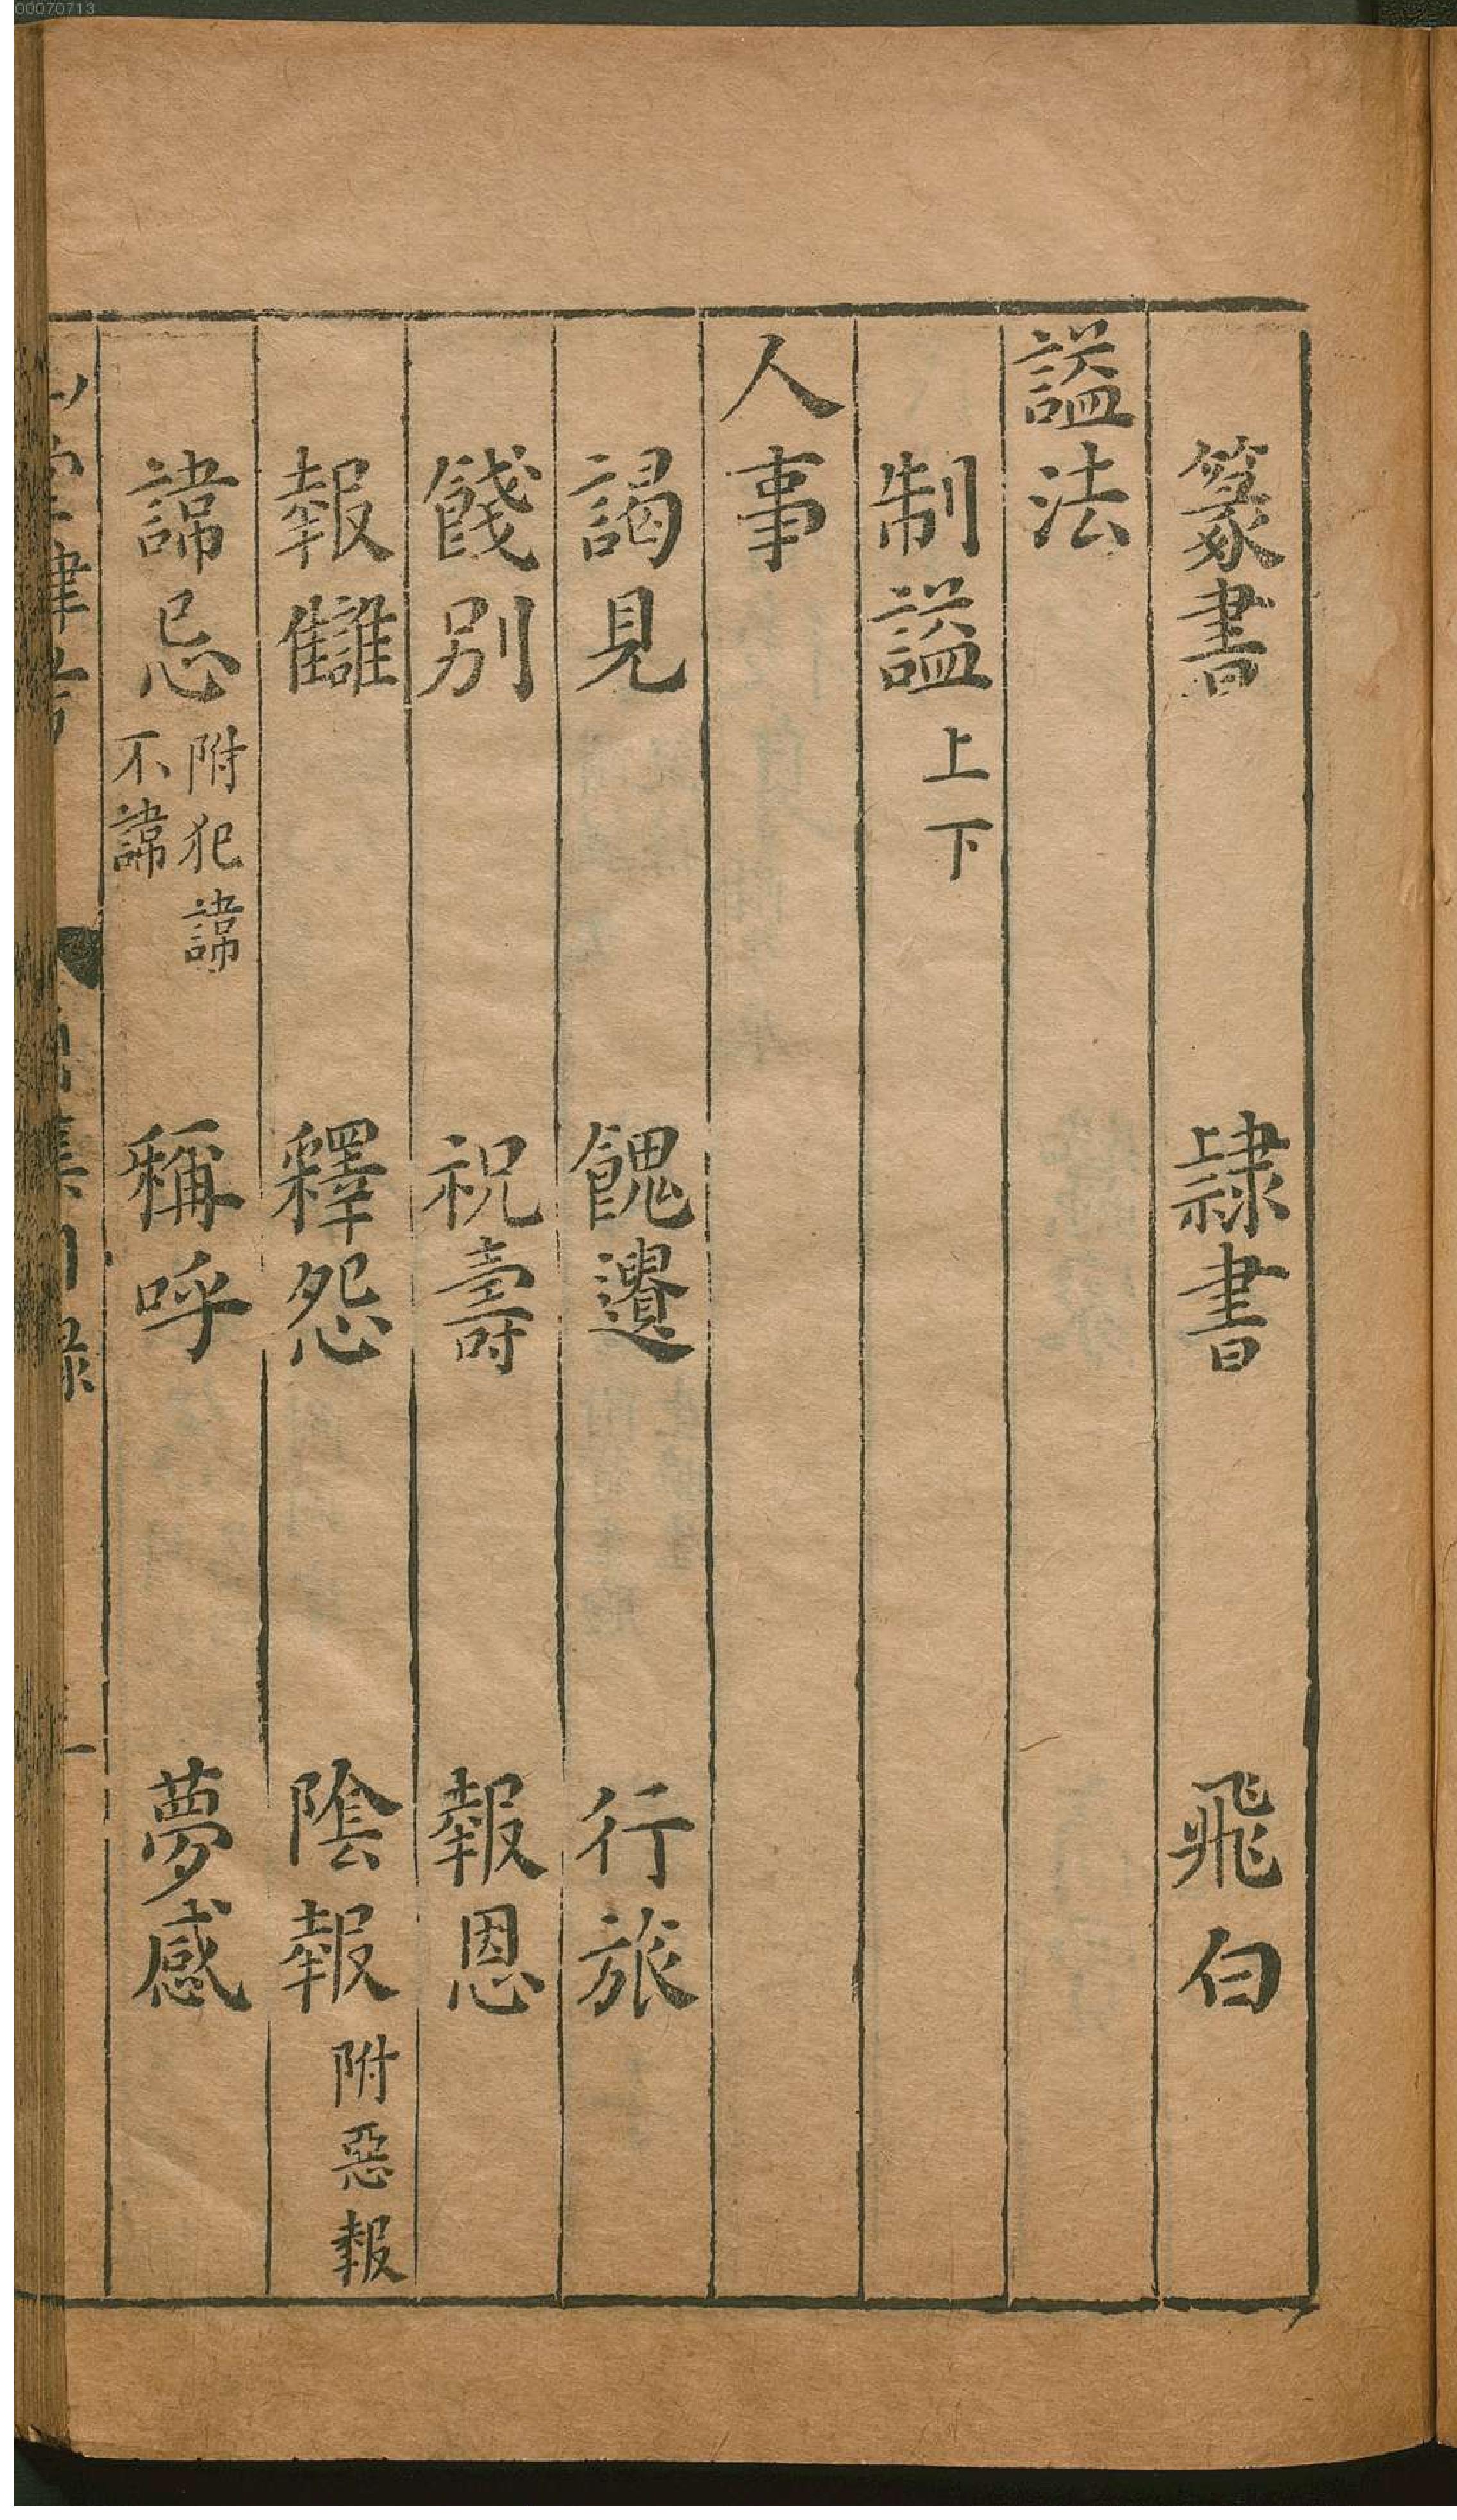 00070713
篆書　隸書　飛白
謚法
制謚上下
人事
謁見　餽遺　行旅
餞別　祝壽　報恩
報讎　釋怨　陰報附惡報
諱忌附犯諱不諱　稱呼　夢感